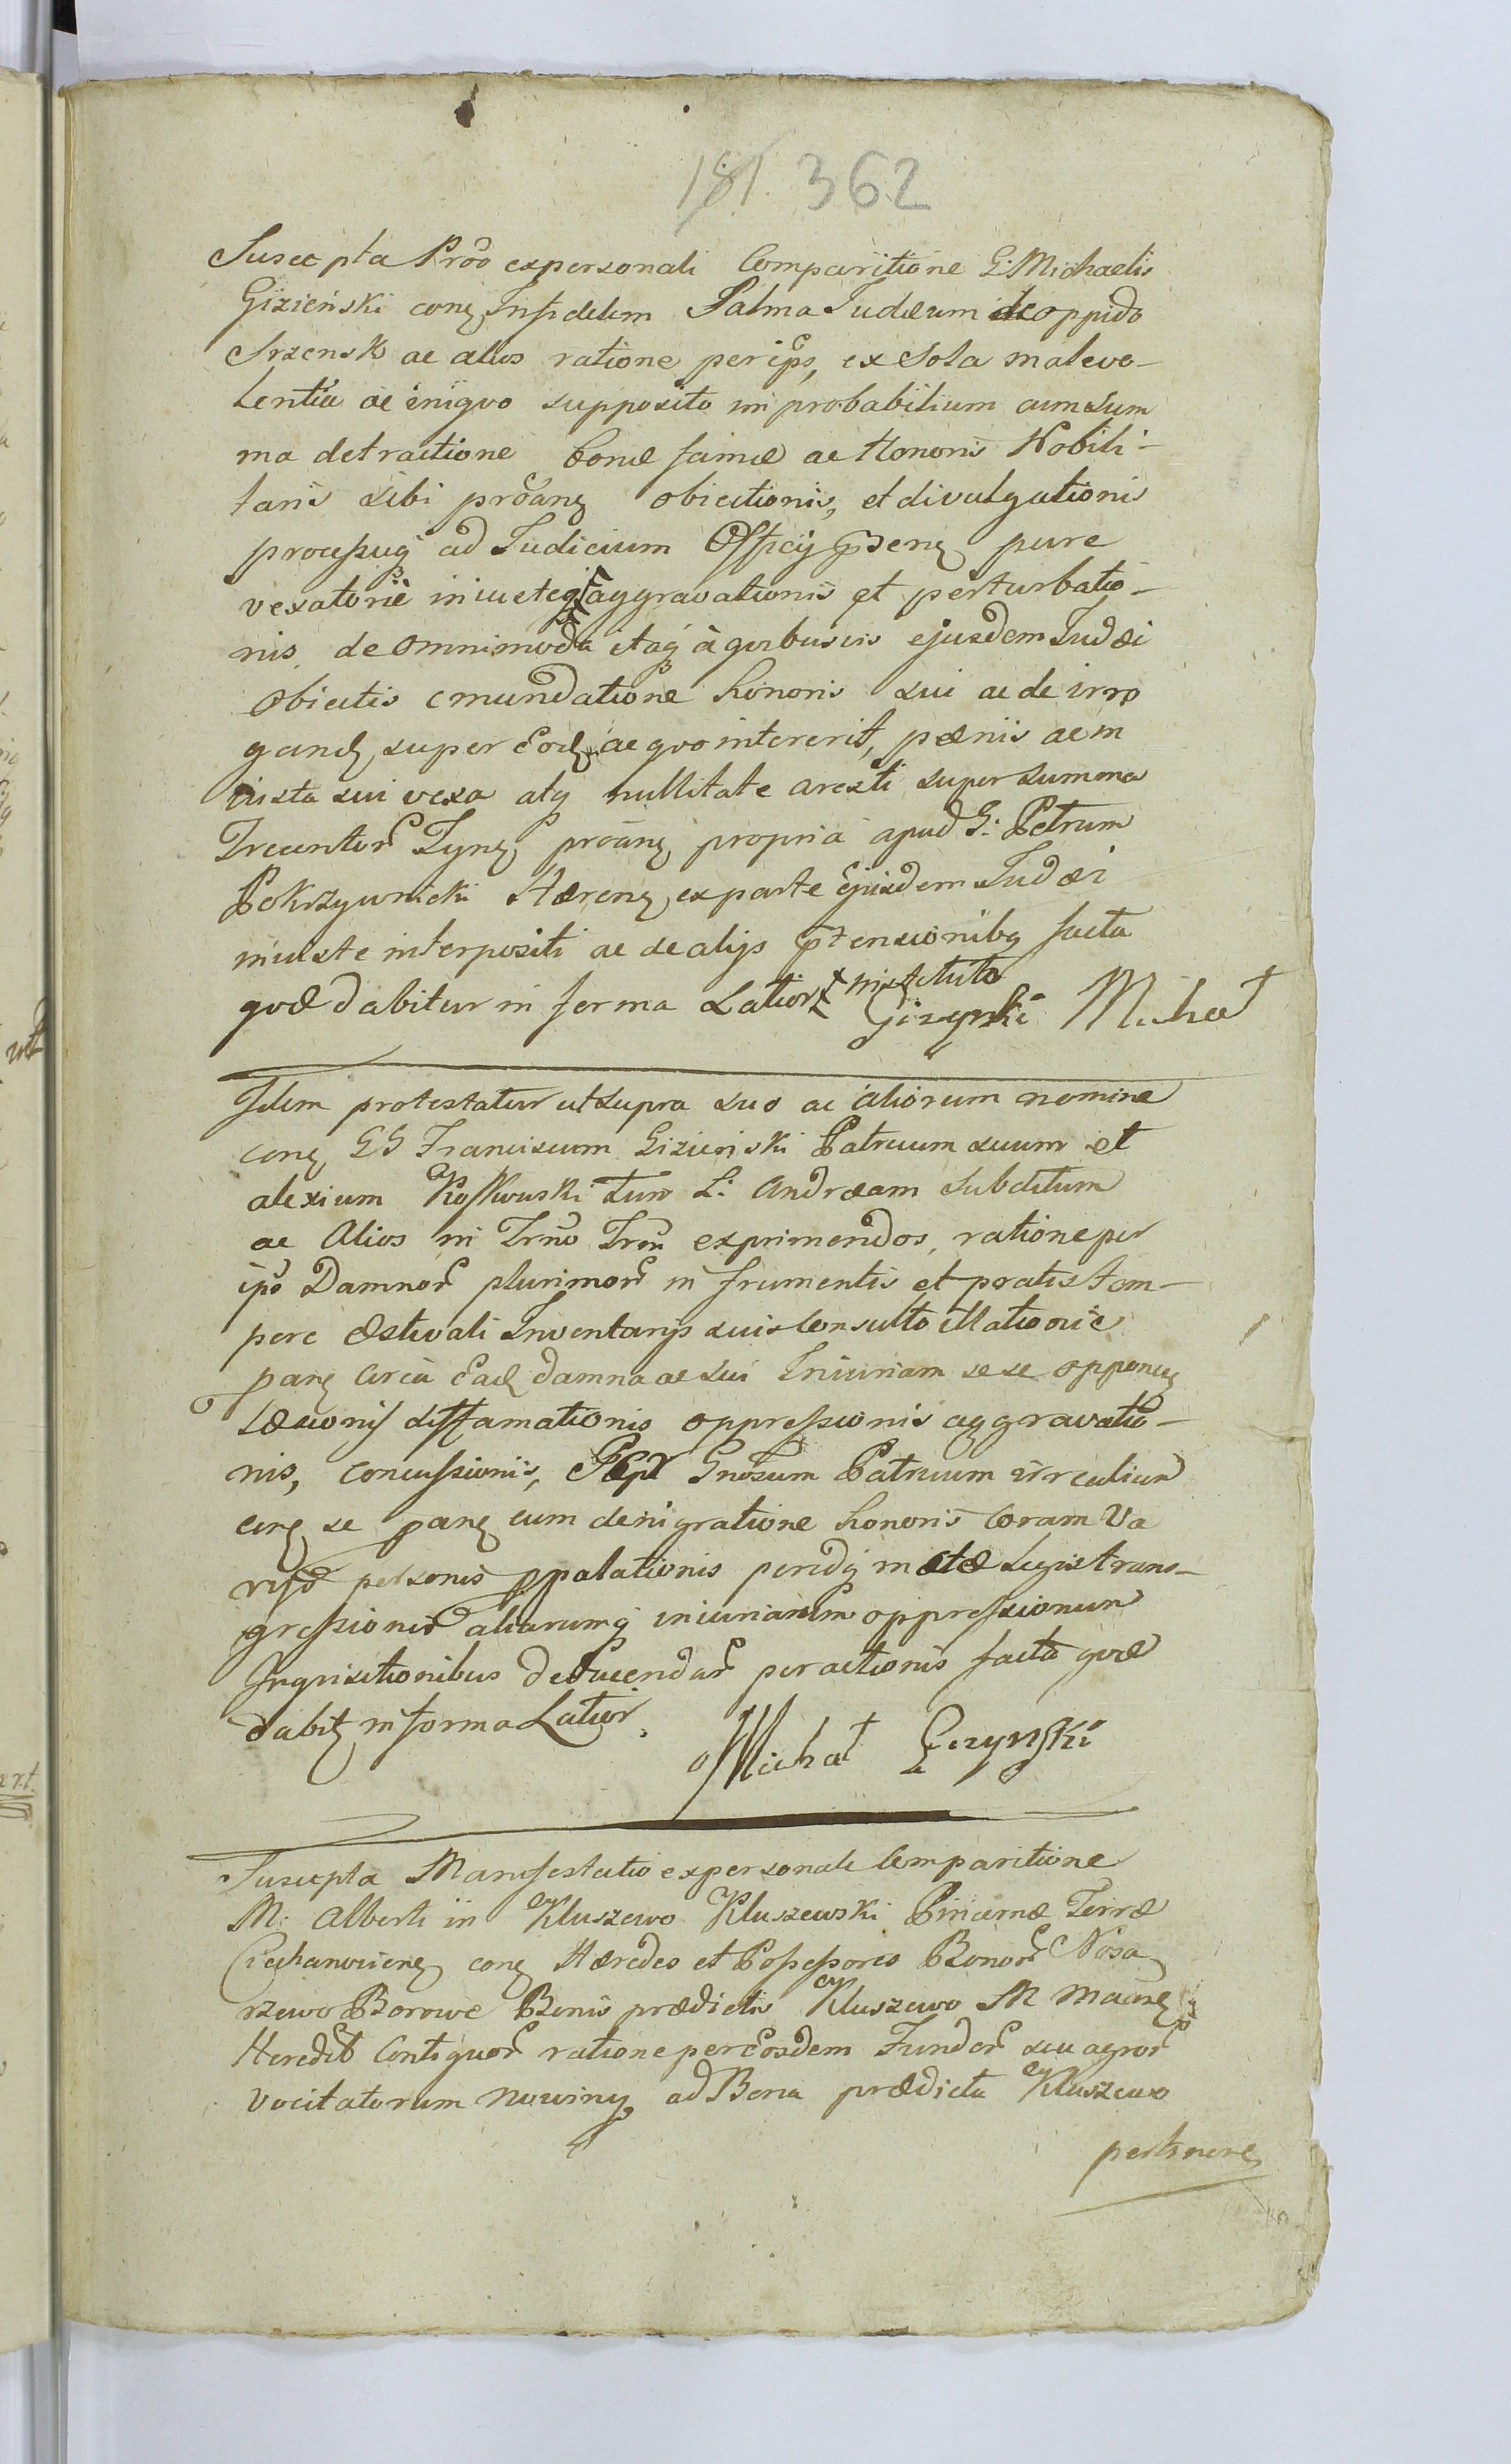 181. 362
Suscepta Prõo expersonali Comparitione G: Michaelis
Gizieński conṛ Infidelem Palma Judæum de oppido
Srzensk ac alios ratione per ip̃s, ex sola malevo-
lentia ac iniquo supposito improbabilium cum sum
ma detractione bonæ famæ ac Honoris Nobili-
taris sibi obiectionis, et divulgationis
processusq̃ ad Judicium Officij p̃senṛ pure
vexatorie iniusteq̃ aggravationis et perturbatio-
nis de omnimoda itaq̃ à quibusvis ejusdem Judæi
obiectis emundatione honoris sui ac de irro
gand super Eod ac quo intererit, pænis ac in
iusta sui vexa atq̃ nullitate aresti super summa
Trecentor̃ Tynṛ propria apud G: Petrum
Pokrzywnicki Hærenṛ ex parte Ejusdem Judæi
iniuste interpositi ac de alijs p̃tensionibq̃ facta
quæ dabitur in forma Latiori institulo
Giżynski Michał
Idem protestatur ut supra suo ac aliorum nomine
conṛ GG Franciscum Gizieński Patruum suum et
alexium Kosskowski tum L: Andræam subditum
ac Alios in Trño Trõu exprimendos, ratione per
ip̃o Damnor̃ plurimor̃ in frumentis et pratis tem-
pore æstivali Inventarijs suis consulto illationis
panṛ circa Ead damna ac sui Iniuriam sese opponenṛ
Læsionis diffamationis oppressionis aggravatio-
nis, concussionis, Gnosum Patruum
se panṛ cum denigratione honoris coram Va
rijs personis p̃palationis legis trans-
gressionis aliarumq̃ iniuriarum oppressionum
Inquisitionibus deducendar̃ peractionis facta quæ
dabit in forma Latiori.
Michał Giżyński
Suscepta Manifestatio expersonali Comparitione
M: Alberti in Kluszewo Kluszewski Pincernæ Terræ
Ciechanoviensṛ conṛ Hæredes et Possessores Bonor̃ Nosa
rzewo Borowe Bonis prædictis Kluszewo M Macñṛ
Heredit Contiguor̃ ratione per Eosdem Fundor̃ seu agror̃
vocitatorum Nowiny ad Bona prædicta Kluszewo
pertinenṛ